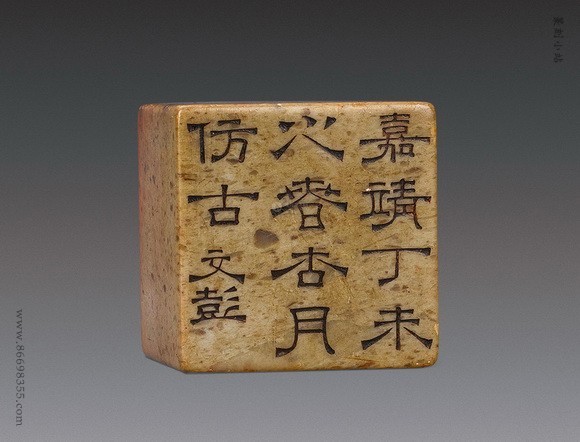 嘉靖丁未
之春杏月
仿古文彭
篆刻小站
www.86698355.com